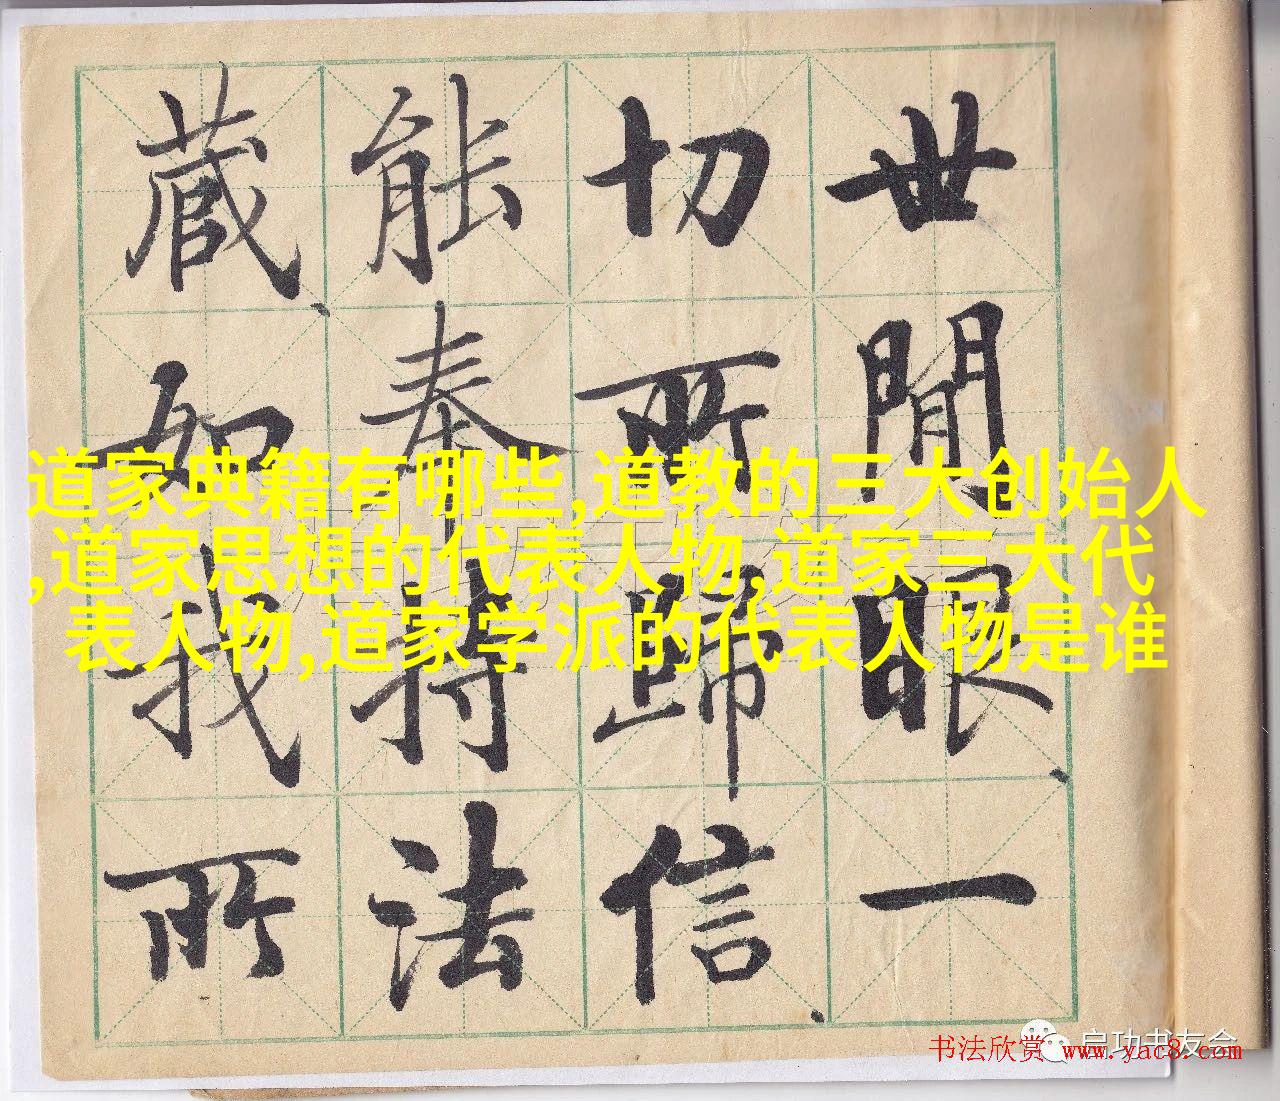 世間眼一
切所歸信
能奉持法
藏如我所
道家典籍有哪些,道教的三大创始人
,道家思想的代表人物,道家三大代
表人物,道家学派的代表人物是谁
启功书友会
书法欣赏 www.yac8.com